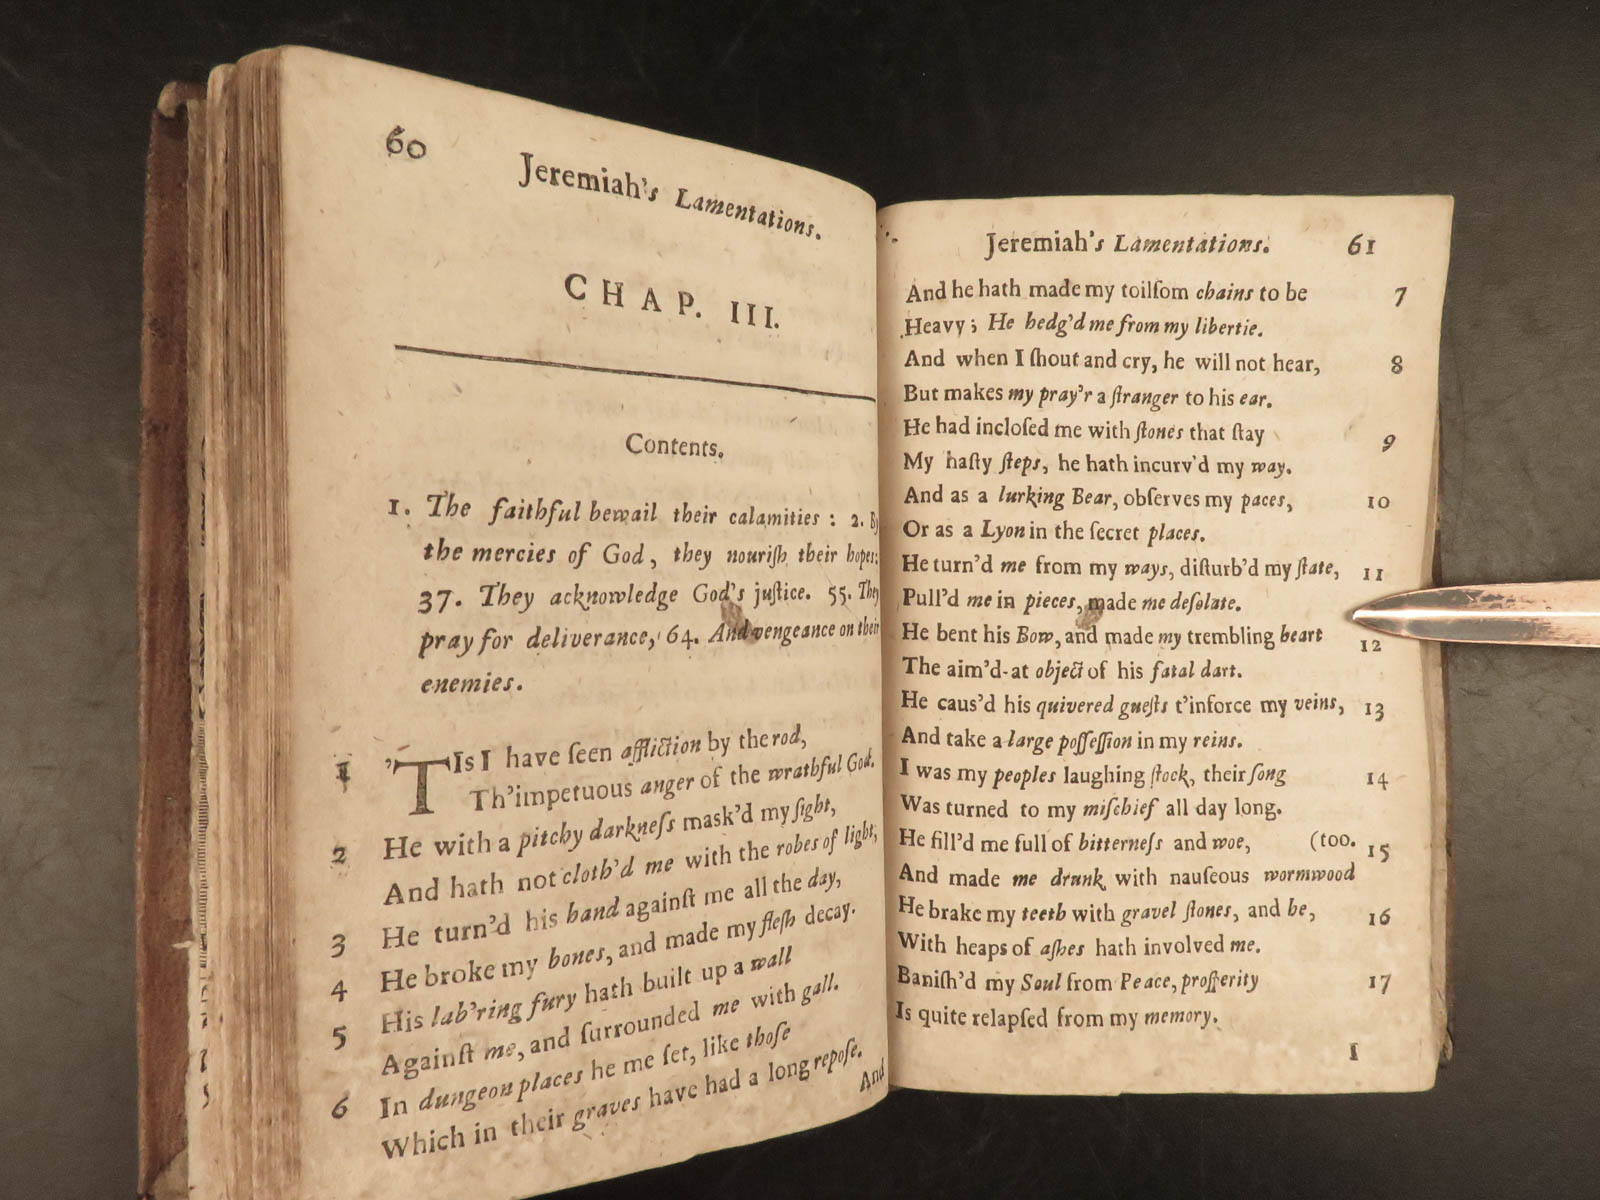 60
Jeremiah's Lamentations.
CHAP. III.
Contents.
1. The faithful bewail their calamities : 2. By
the mercies of God, they nouriſh their hopes:
37. They acknowledge God's juſtice. 55. They
pray for deliverance, 64. And vengeance on their
enemies.
1 'TIs I have ſeen affliction by the rod,
Th'impetuous anger of the wrathful God.
2 He with a pitchy darkneſs mask'd my ſight,
And hath not cloth'd me with the robes of light;
3 He turn'd his hand againſt me all the day,
4 He broke my bones, and made my fleſh decay.
5 His lab'ring fury hath built up a wall
Againſt me, and ſurrounded me with gall.
6 In dungeon places he me ſet, like thoſe
Which in their graves have had a long repoſe.
And
Jeremiah's Lamentations. 61
And he hath made my toilſom chains to be 7
Heavy; He hedg'd me from my libertie.
And when I ſhout and cry, he will not hear, 8
But makes my pray'r a ſtranger to his ear.
He had incloſed me with ſtones that ſtay 9
My haſty ſteps, he hath incurv'd my way.
And as a lurking Bear, obſerves my paces, 10
Or as a Lyon in the ſecret places.
He turn'd me from my ways, diſturb'd my ſtate, 11
Pull'd me in pieces, made me deſolate.
He bent his Bow, and made my trembling heart 12
The aim'd-at object of his fatal dart.
He caus'd his quivered gueſts t'inforce my veins, 13
And take a large poſſeſſion in my reins.
I was my peoples laughing ſtock, their ſong 14
Was turned to my miſchief all day long.
He fill'd me full of bitterneſs and woe, (too. 15
And made me drunk with nauſeous wormwood
He brake my teeth with gravel ſtones, and he, 16
With heaps of aſhes hath involved me.
Baniſh'd my Soul from Peace, proſperity 17
Is quite relapſed from my memory.
I